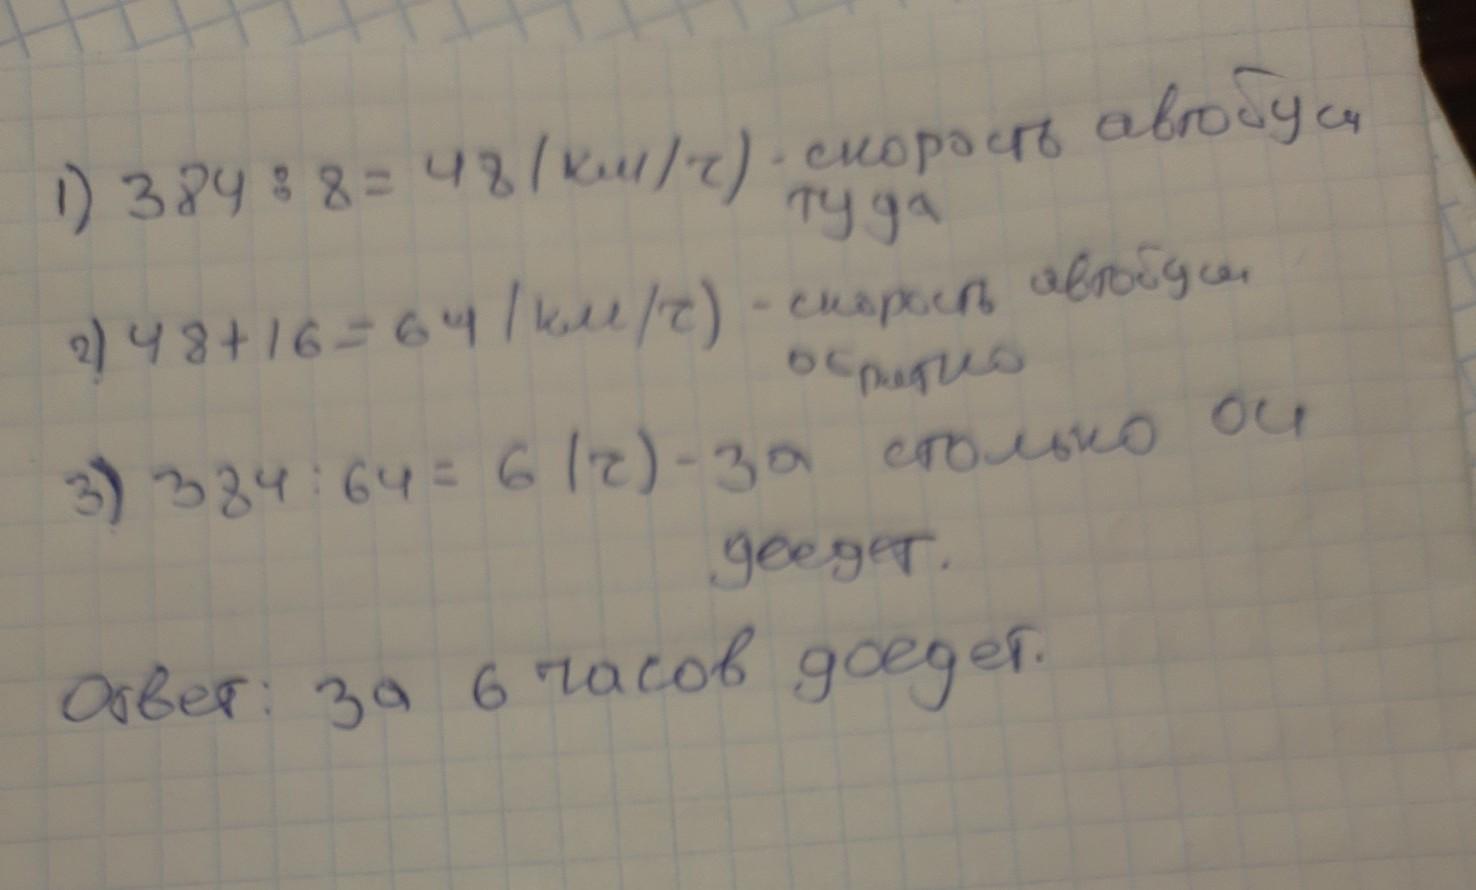 1) 384 : 8 = 48 (км/ч) - скорость автобуса
туда
2) 48 + 16 = 64 (км/ч) - скорость автобуса
обратно
3) 384 : 64 = 6 (ч) - за столько он
доедет.
Ответ: за 6 часов доедет.